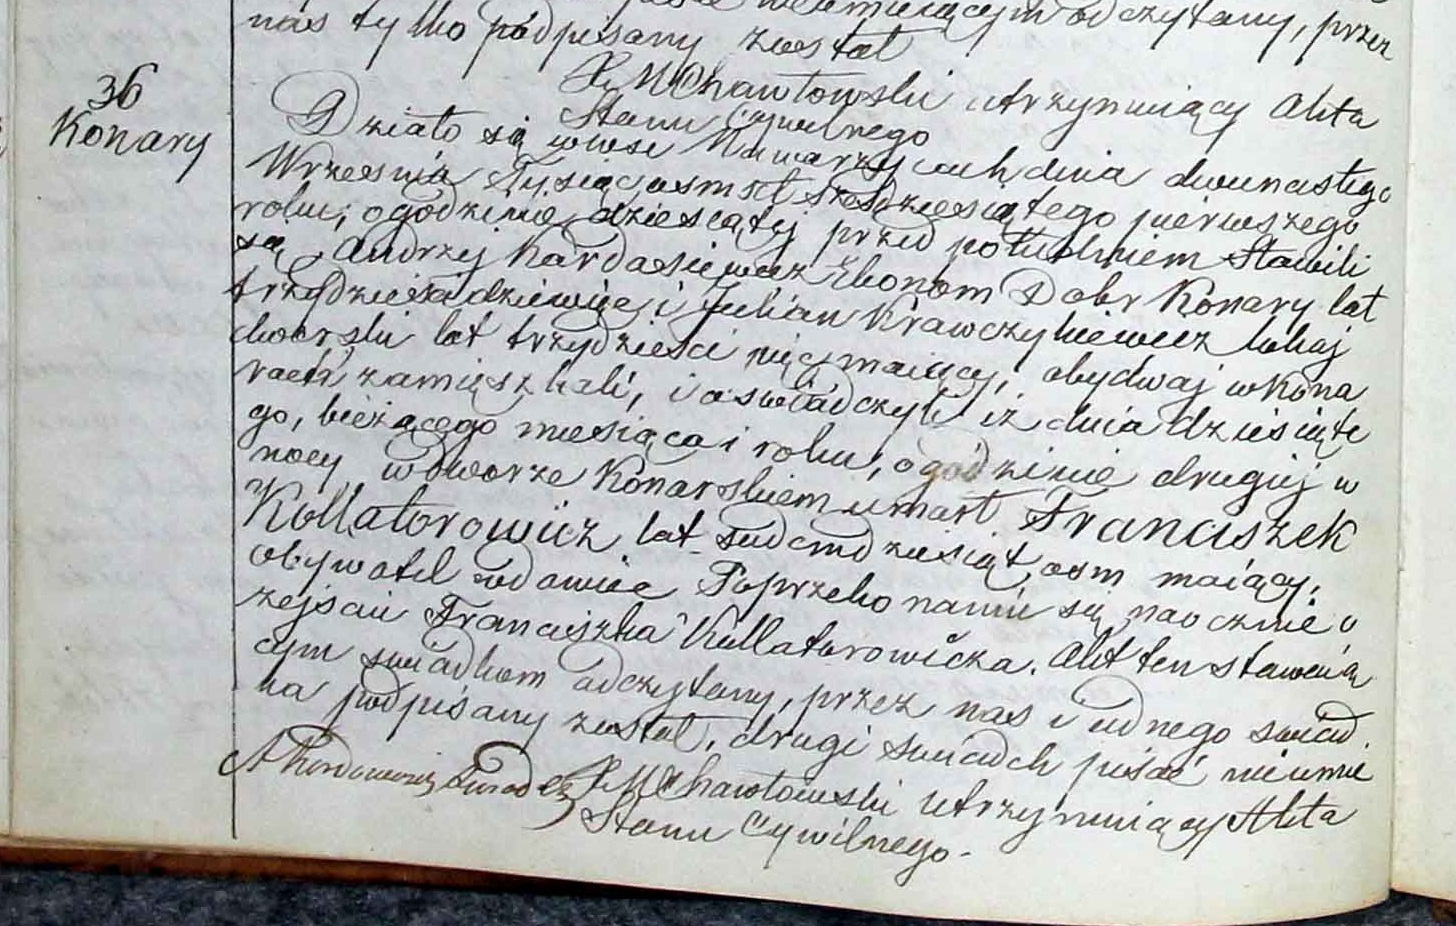 odczytany, przez
nas tylko podpisany został
X. M Chawłowski utrzymuiący Akta
Stanu Cywilnego
36
Konary
Działo się wewsi dnia dwunastego
Września Tysiąc osmset sześdziesiątego pierwszego
roku; ogodzinie dziesiątej przed południem Stawili
się, Andrzej Kardasiewicz Ekonom Dobr Konary lat
trzydzieścidziewięć i Julian Krawczykiewicz lokaj
dworski lat trzydzieści pięć maiący, obydwaj w Kona
rach zamięszkali, i oświadczyli iż dnia dziesiąte
go, bieżącego miesiąca i roku, ogodzinie drugiej w
nocy w dworze Konarskiem umarł Franciszek
Kollatorowicz lat siedmdziesiąt osm maiący,
obywatel wdowiec Poprzekonaniu się naocznie o
zejściu Franciszka Kollatorowicza. Akt ten stawaią
cym świadkom odczytany, przez nas i iednego świad
ka podpisany został, drugi świadek pisać nieumie
X M Chawłowski Utrzymuiący Akta
Stanu Cywilnego.